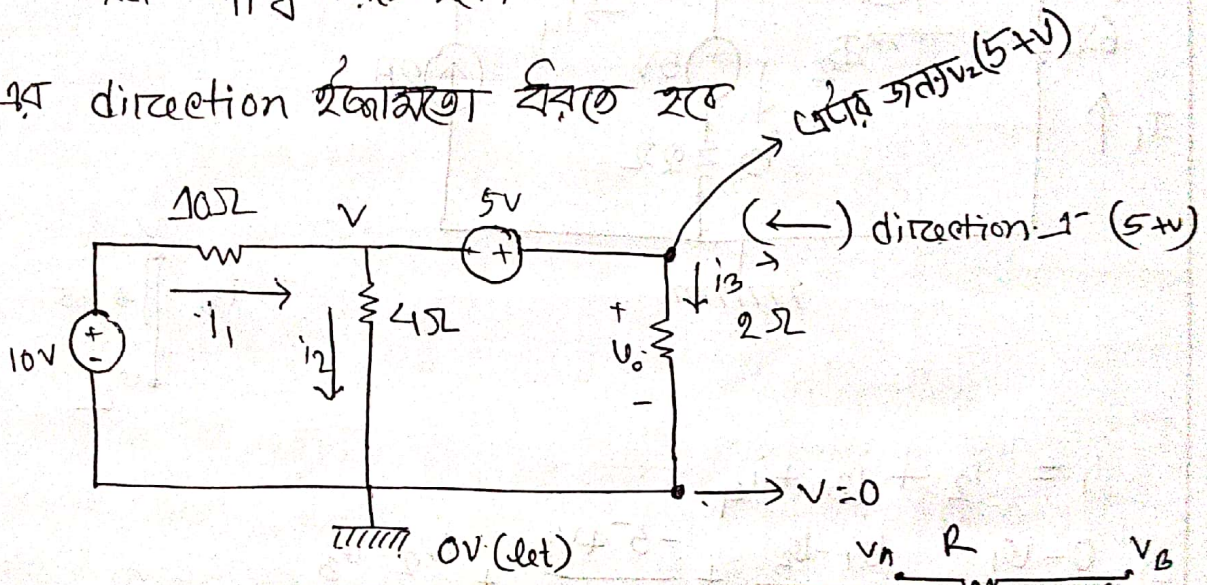 এর direction ইচ্ছামতো ধরতে হবে
এটার জন্য V₂(5+V)
10Ω V 5V
(←) direction এ (5+V)
- +
i₁ i₂ 4Ω + V₀ - i₃ 2Ω
10V + -
→ V=0
0V (let)
V_A R V_B